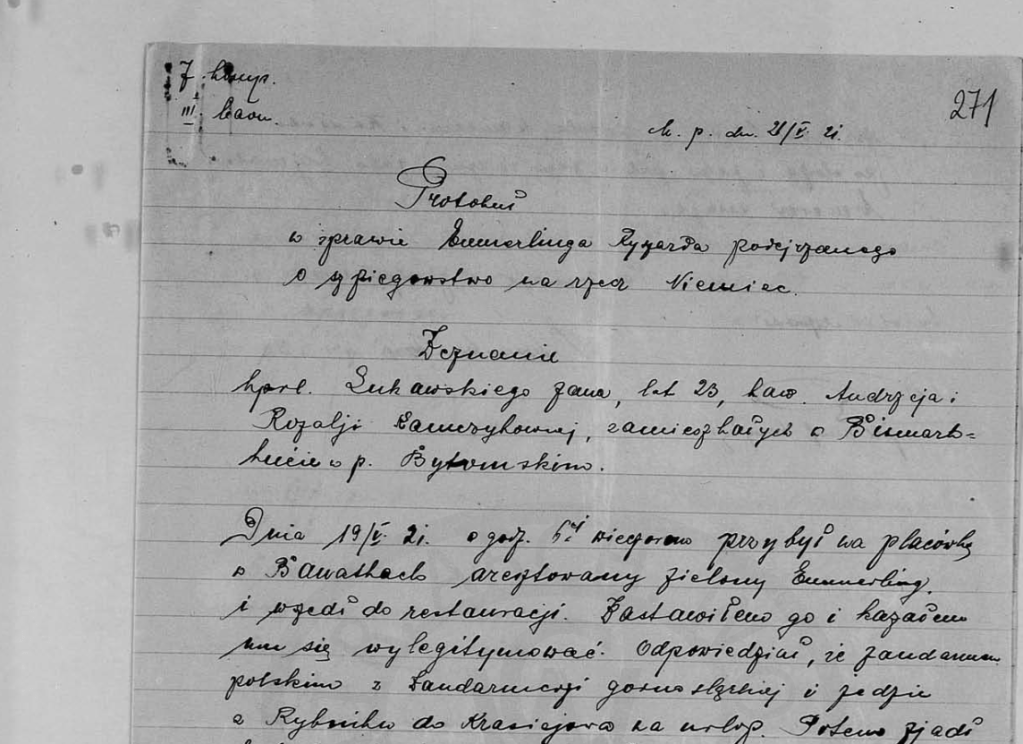 7. komp.
III. baon.
271
M. p. dn. 21/V. 21.
Protokuł
w sprawie Emmerlinga Ryszarda podejrzanego
o szpiegowstwo na rzecz Niemiec.
Zeznanie
kprl. Lukawskiego Jana, lat 23, kaw. Andrzeja i
Rozalji zamieszkałych w Bismark=
hucie w p. Bytomskim.
Dnia 19/V. 21. o godz. 6tej wieczorem przybył na placówkę
w aresztowany Emmerling
i wszedł do restauracji. Zastawiłem go i kazałem
mu się wylegitymować. Odpowiedział, że żandarmem
polskim z Żandarmerji górnoślązkiej i jedzie
z Rybnika do na urlop. Potem zjadł